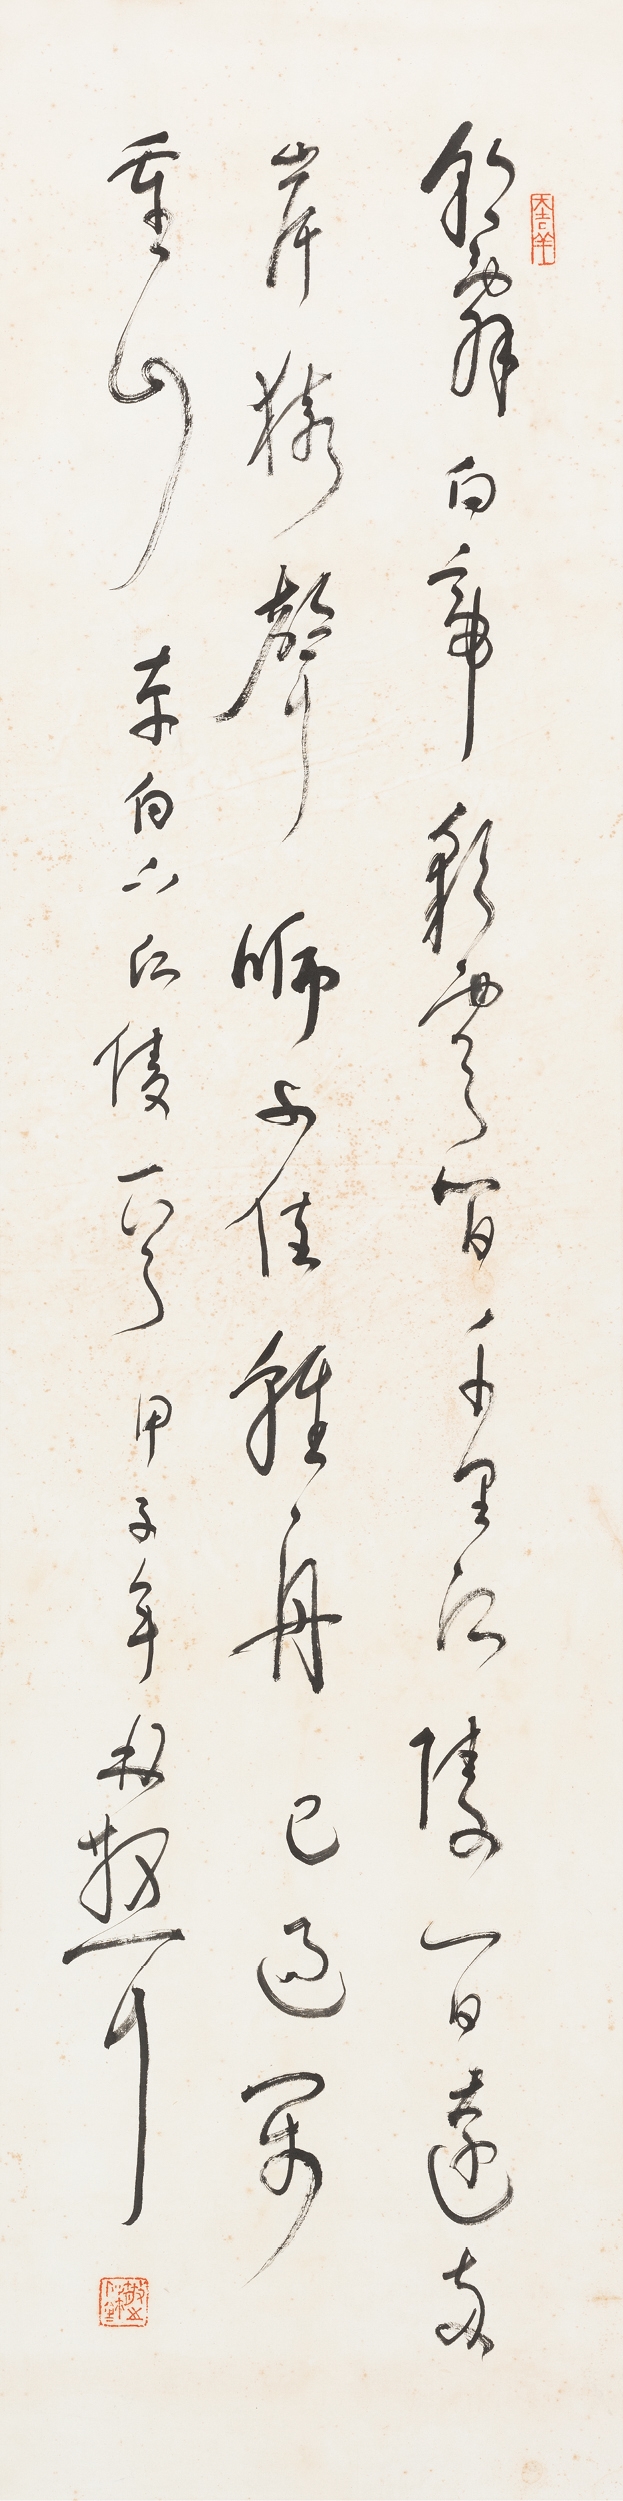 大吉羊
朝辭白帝彩雲間千里江陵一日還兩
岸猿聲啼不住輕舟已過萬
重山 李白下江陵一首 甲子年 林散耳